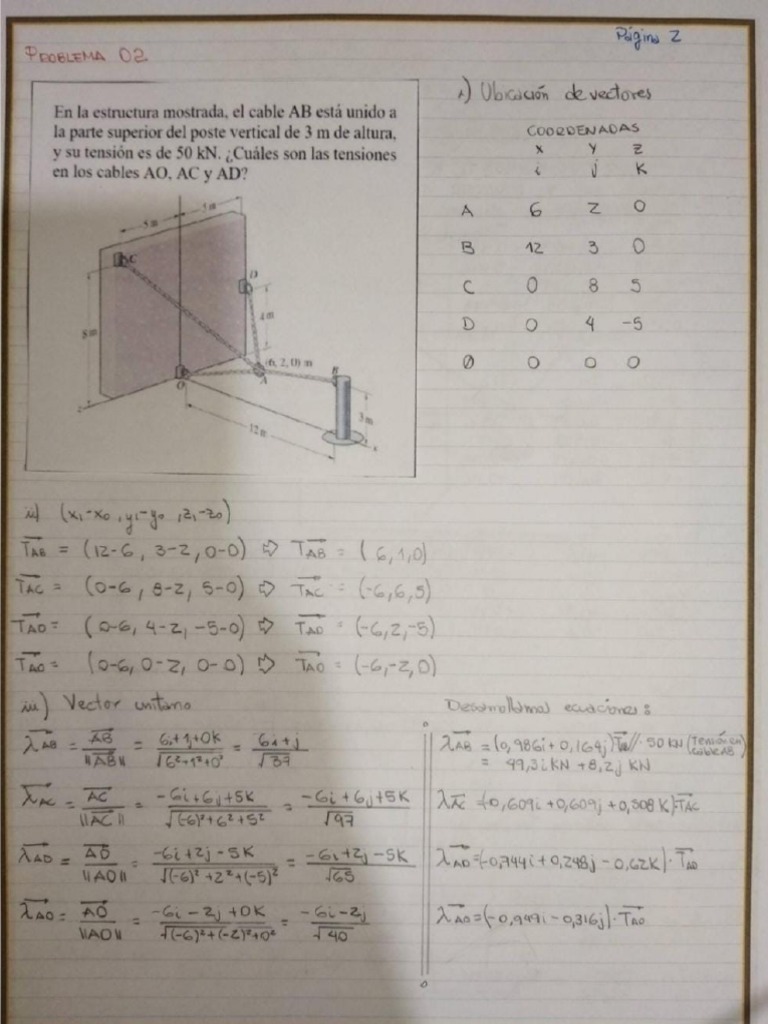 Página 2
PROBLEMA 02
En la estructura mostrada, el cable AB está unido a
la parte superior del poste vertical de 3 m de altura,
y su tensión es de 50 kN. ¿Cuáles son las tensiones
en los cables AO, AC y AD?
5 m
5 m
C
D
8 m
4 m
(6, 2, 0) m
O
A
B
3 m
12 m
z
x
i) Ubicación de vectores
COORDENADAS
X Y Z
i j K
A 6 2 0
B 12 3 0
C 0 8 5
D 0 4 -5
Ø 0 0 0
ii) (x₁-x₀, y₁-y₀, z₁-z₀)
TAB = (12-6, 3-2, 0-0) ⇨ TAB = (6,1,0)
TAC = (0-6, 8-2, 5-0) ⇨ TAC = (-6,6,5)
TAD = (0-6, 4-2, -5-0) ⇨ TAD = (-6,2,-5)
TAO = (0-6, 0-2, 0-0) ⇨ TAO = (-6,-2,0)
iii) Vector unitario
λAB = AB / ||AB|| = 6i+1j+0K / √6²+1²+0² = 6i+j / √37
λAC = AC / ||AC|| = -6i+6j+5K / √(-6)²+6²+5² = -6i+6j+5K / √97
λAD = AD / ||AD|| = -6i+2j-5K / √(-6)²+2²+(-5)² = -6i+2j-5K / √65
λAO = AO / ||AO|| = -6i-2j+0K / √(-6)²+(-2)²+0² = -6i-2j / √40
Desarrollamos ecuaciones:
λAB = (0,986i+0,164j) 50 KN (Tensión en cable AB)
= 49,3i KN + 8,2j KN
λAC = (-0,609i+0,609j+0,508K)·TAC
λAD = (-0,744i+0,248j-0,62K)·TAD
λAO = (-0,949i-0,316j)·TAO